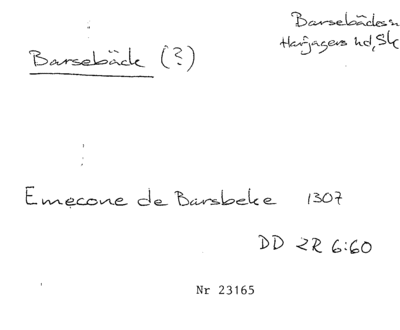 Barsebäcks sn
Harjagers hd, Sk
Barsebäck (?)
Emecone de Barsbeke 1307
DD 2R 6:60
Nr 23165